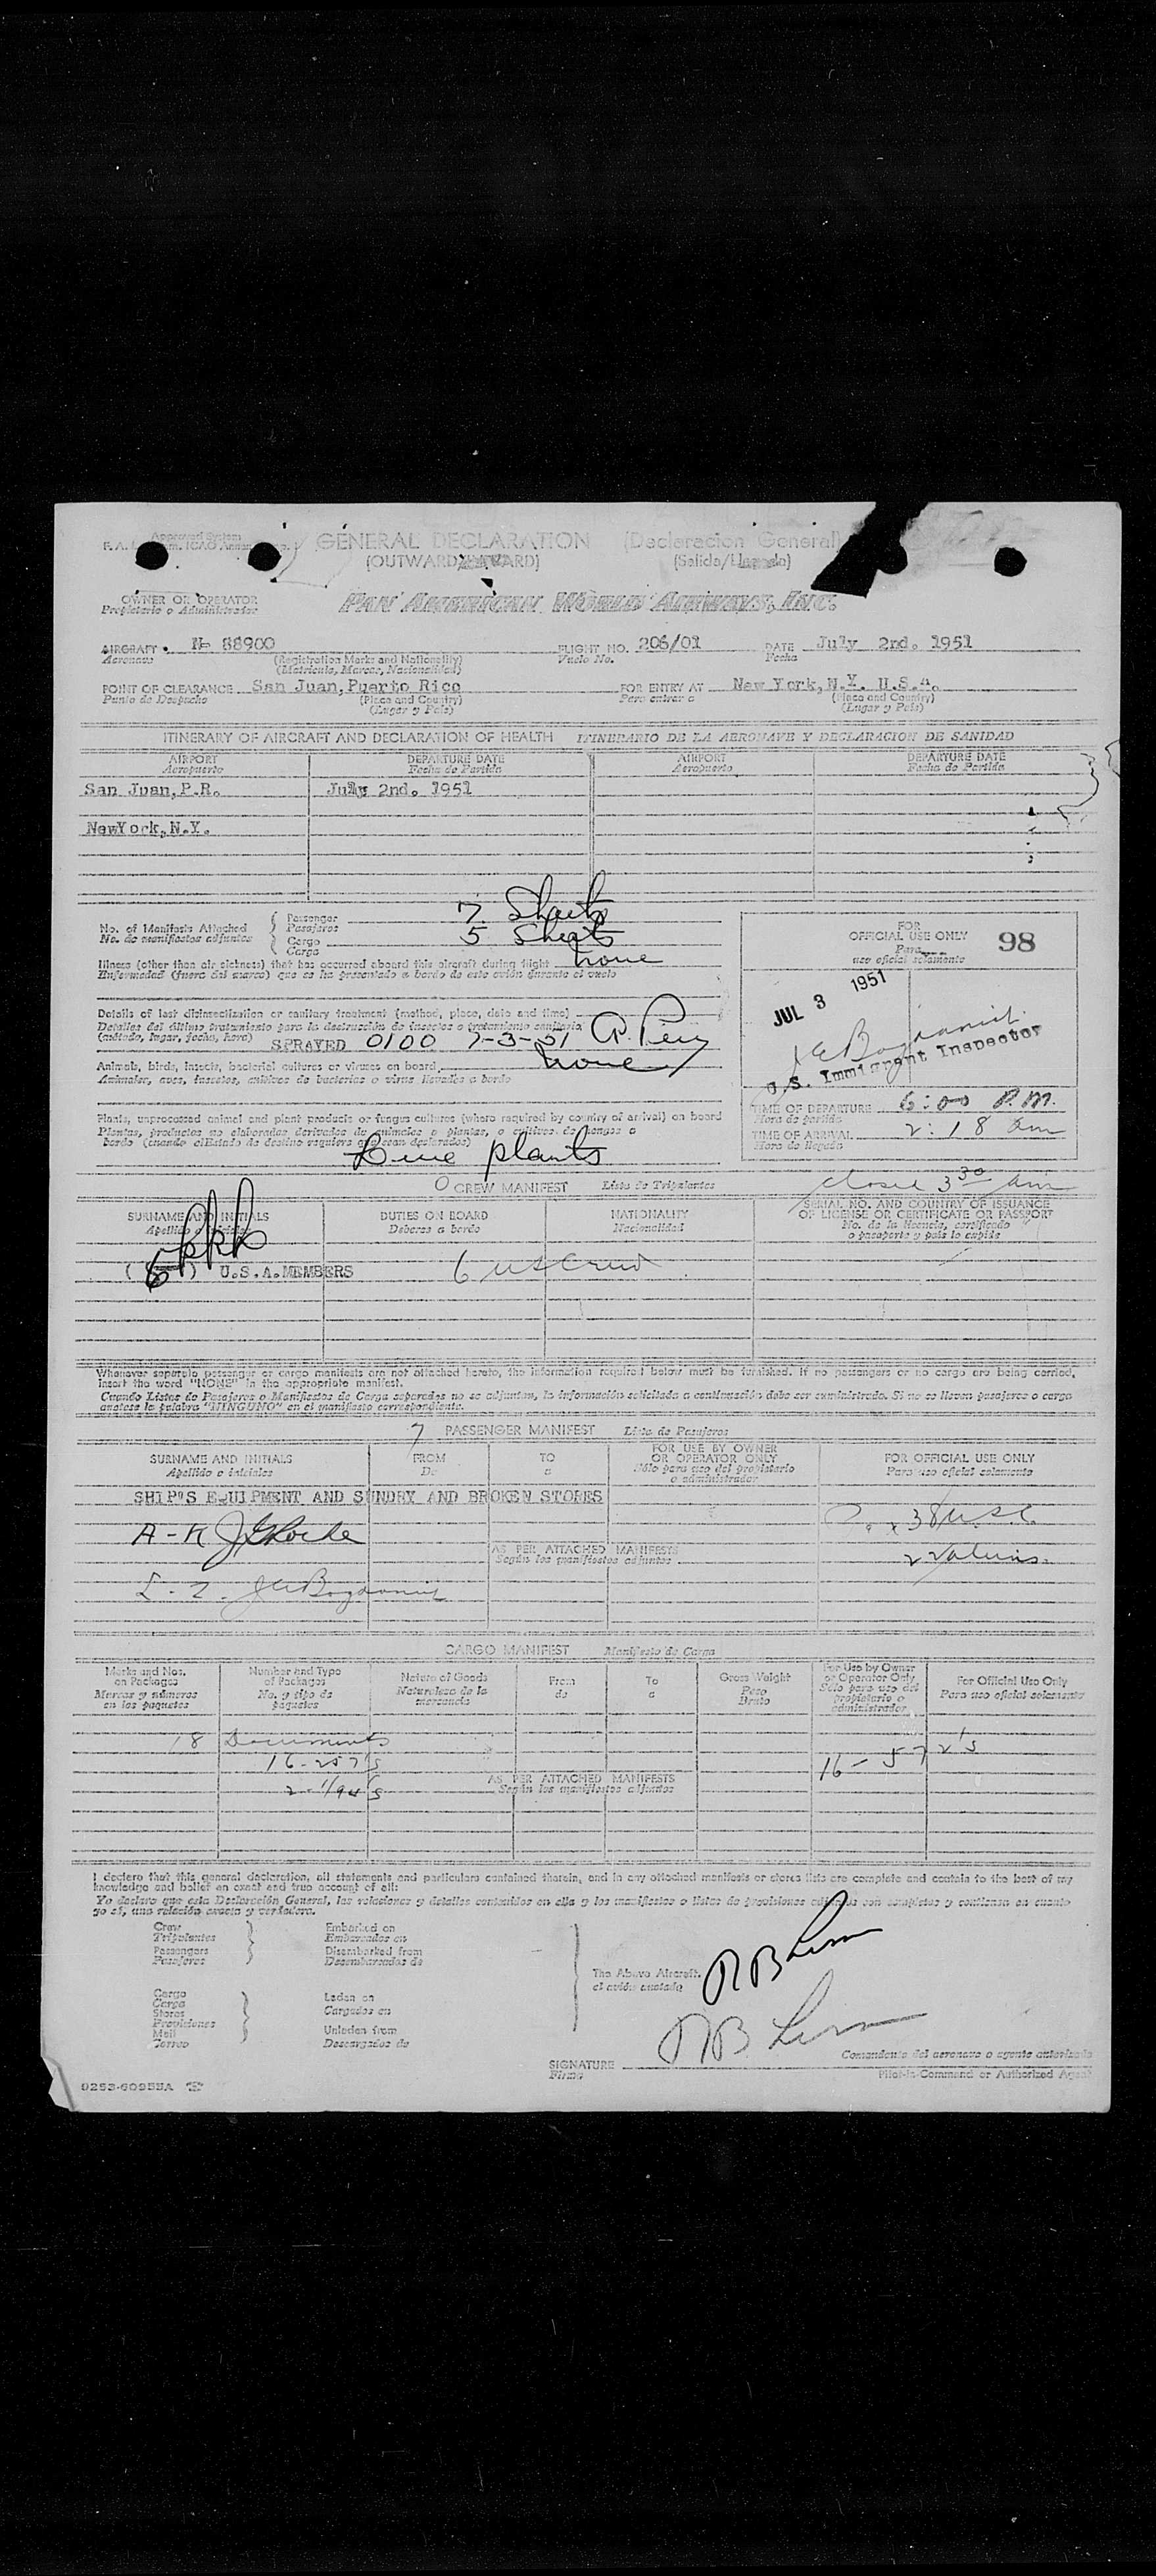 GENERAL DECLARATION (Declaracion General)
(OUTWARD/INWARD) (Salida/Llegada)
OWNER OR OPERATOR PAN AMERICAN WORLD AIRWAYS, INC.
Propietario o Administrador
AIRCRAFT N- 88900 FLIGHT NO. 206/01 DATE July 2nd. 1951
Aeronave (Registration Marks and Nationality) Vuelo No. Fecha
(Matricula, Marcas, Nacionalidad)
POINT OF CLEARANCE San Juan,Puerto Rico FOR ENTRY AT New York,N.Y. U.S.A.
Punto de Despacho (Place and Country) Para entrar a (Place and Country)
(Lugar y Pais) (Lugar y Pais)
ITINERARY OF AIRCRAFT AND DECLARATION OF HEALTH ITINERARIO DE LA AERONAVE Y DECLARACION DE SANIDAD
AIRPORT DEPARTURE DATE AIRPORT DEPARTURE DATE
Aeropuerto Fecha de Partida Aeropuerto Fecha de Partida
San Juan,P.R. July 2nd. 1951
NewYork,N.Y.
No. of Manifests Attached Passenger 7 Sheets
No. de manifiestos adjuntos Pasajeros
Cargo 5 Sheets
Carga
FOR
OFFICIAL USE ONLY 98
Para
uso oficial solamente
Illness (other than air sickness) that has occurred aboard this aircraft during flight none
Enfermedad (fuera del mareo) que se ha presentado a bordo de este avión durante el vuelo
JUL 3 1951
Details of last disinsectization or sanitary treatment (method, place, date and time)
Detalles del último tratamiento para la destrucción de insectos o tratamiento sanitario
(método, lugar, fecha, hora) SPRAYED 0100 7-3-51
U.S. Immigrant Inspector
Animals, birds, insects, bacterial cultures or viruses on board none
Animales, aves, insectos, cultivos de bacterias o virus llevados a bordo
TIME OF DEPARTURE 6:00 P.M.
Hora de partida
TIME OF ARRIVAL 2:18 am
Hora de llegada
Plants, unprocessed animal and plant products or fungus cultures (where required by country of arrival) on board
Plantas, productos no elaborados derivados de animales o plantas, o cultivos de hongos a
bordo (cuando el Estado de destino requiera que sean declarados)
plants
closed 3 30 am
CREW MANIFEST Lista de Tripulantes
SURNAME AND INITIALS DUTIES ON BOARD NATIONALITY SERIAL NO. AND COUNTRY OF ISSUANCE
OF LICENSE OR CERTIFICATE OR PASSPORT
Apellido e iniciales Deberes a bordo Nacionalidad No. de la licencia, certificado
o pasaporte y pais lo expide
( 6 ) U.S.A.MEMBERS 6 us Crew
Whenever separate passenger or cargo manifests are not attached hereto, the information required below must be furnished. If no passengers or no cargo are being carried,
insert the word "NONE" in the appropriate manifest.
Cuando Listas de Pasajeros o Manifiestos de Carga separados no se adjuntan, la información solicitada a continuación debe ser suministrada. Si no se llevan pasajeros o carga
anótese la palabra "NINGUNO" en el manifiesto correspondiente.
7 PASSENGER MANIFEST Lista de Pasajeros
SURNAME AND INITIALS FROM TO FOR USE BY OWNER
OR OPERATOR ONLY FOR OFFICIAL USE ONLY
Apellido e iniciales De a Sólo para uso del propietario
o administrador Para uso oficial solamente
SHIP'S EQUIPMENT AND SUNDRY AND BROKEN STORES
38 U.S.C.
A-K
AS PER ATTACHED MANIFESTS
Según los manifiestos adjuntos
2 aliens
L-Z
CARGO MANIFEST Manifiesto de Carga
Marks and Nos.
on Packages
Marcas y números
en los paquetes
Number and Type
of Packages
No. y tipo de
paquetes
Nature of Goods
Naturaleza de la
mercancía
From
de
To
a
Gross Weight
Peso
Bruto
For Use by Owner
or Operator Only
Sólo para uso del
propietario o
administrador
For Official Use Only
Para uso oficial solamente
18 Documents
16-257's 16-572's
2-1/94's
AS PER ATTACHED MANIFESTS
Según los manifiestos adjuntos
I declare that this general declaration, all statements and particulars contained therein, and in any attached manifests or stores lists are complete and contain to the best of my
knowledge and belief an exact and true account of all:
Yo declaro que esta Declaración General, las relaciones y detalles contenidos en ella y los manifiestos o listas de provisiones adjuntas son completos y contienen en cuanto
yo sé, una relación exacta y verdadera.
Crew Embarked on
Tripulantes Embarcados en
Passengers Disembarked from
Pasajeros Desembarcados de
The Above Aircraft.
el avión citado
Cargo Laden on
Carga Cargados en
Stores
Provisiones Unladen from
Mail Descargados de
Correo
SIGNATURE Comandante del aeronave o agente autorizado
Firma Pilot-in-Command or Authorized Agent
9253-6095BA